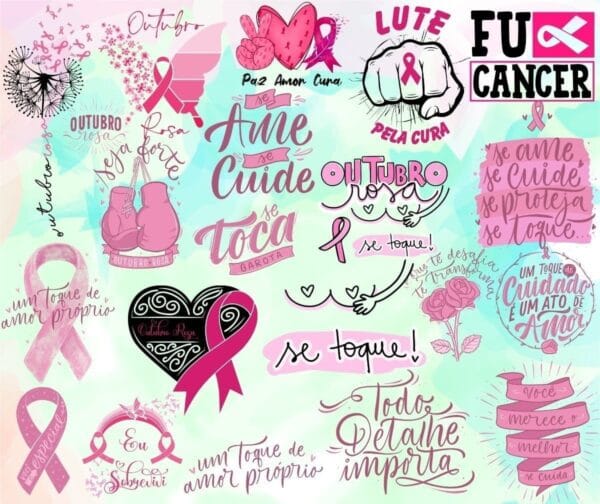 Outubro
Rosa
Paz Amor Cura
LUTE
PELA CURA
FU
CANCER
outubro rosa
OUTUBRO
rosa
Seja forte
OUTUBRO ROSA
se
Ame
se
Cuide
se
toca
GAROTA
OUTUBRO
rosa
se toque!
se ame
se cuide
se proteja
se toque...
que te desafia
te transforma
UM TOQUE de
Cuidado
É UM ATO DE
Amor
um toque de
amor próprio
Outubro Rosa
se toque!
especial
Eu
Sobrevivi
um toque de
amor próprio
Todo
Detalhe
importa
Você
merece o
melhor.
se cuida